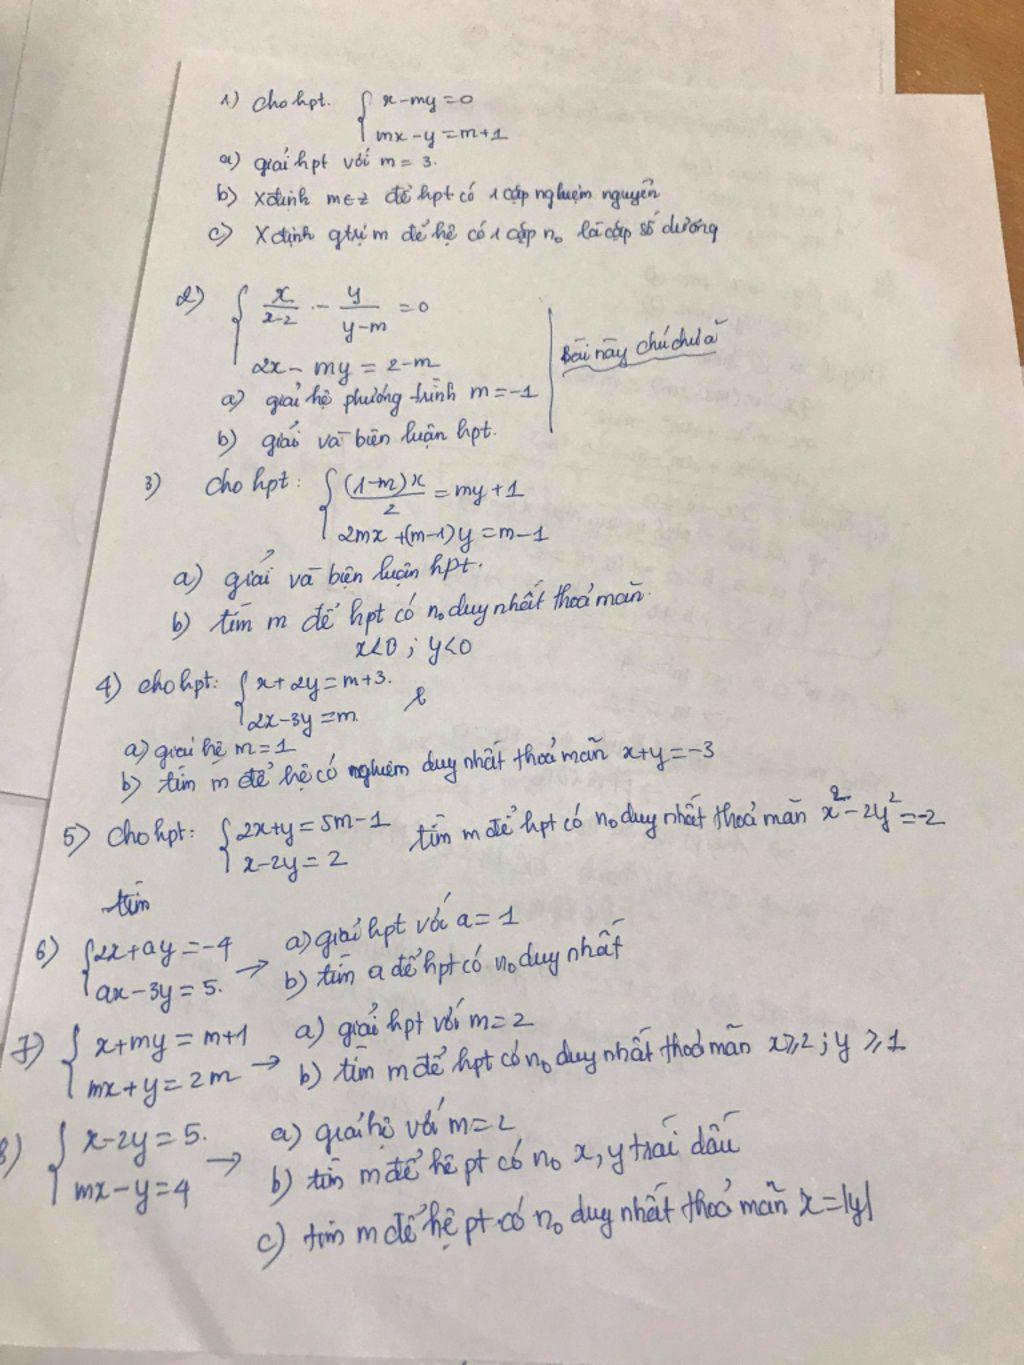 1) Cho hpt. { x - my = 0
mx - y = m+1
a) giải hpt với m = 3.
b) Xđịnh m∈Z để hpt có 1 cặp nghiệm nguyên
c) Xđịnh gtrị m để hệ có 1 cặp n₀ là cặp số dương
2) { x/(x-2) - y/(y-m) = 0
2x - my = 2-m
Bài này chú chưa
a) giải hệ phương trình m = -1
b) giải và biện luận hpt.
3) Cho hpt: { (1-m)x/2 = my + 1
2mx + (m-1)y = m-1
a) giải và biện luận hpt.
b) tìm m để hpt có n₀ duy nhất thoả mãn.
x<0 ; y<0
4) Cho hpt: { x + 2y = m+3.
2x - 3y = m.
a) giải hệ m = 1
b) tìm m để hệ có nghiệm duy nhất thoả mãn x+y = -3
5) Cho hpt: { 2x+y = 5m-1 tìm m để hpt có n₀ duy nhất thoả mãn x² - 2y² = -2
x - 2y = 2
tìm
6) { 2x + ay = -4 → a) giải hpt với a = 1
ax - 3y = 5. b) tìm a để hpt có n₀ duy nhất
7) { x + my = m+1 → a) giải hpt với m = 2
mx + y = 2m b) tìm m để hpt có n₀ duy nhất thoả mãn x ≥ 2 ; y ≥ 1
8) { x - 2y = 5. → a) giải hệ với m = 2
mx - y = 4 b) tìm m để hệ pt có n₀ x, y trái dấu
c) tìm m để hệ pt có n₀ duy nhất thoả mãn x = |y|